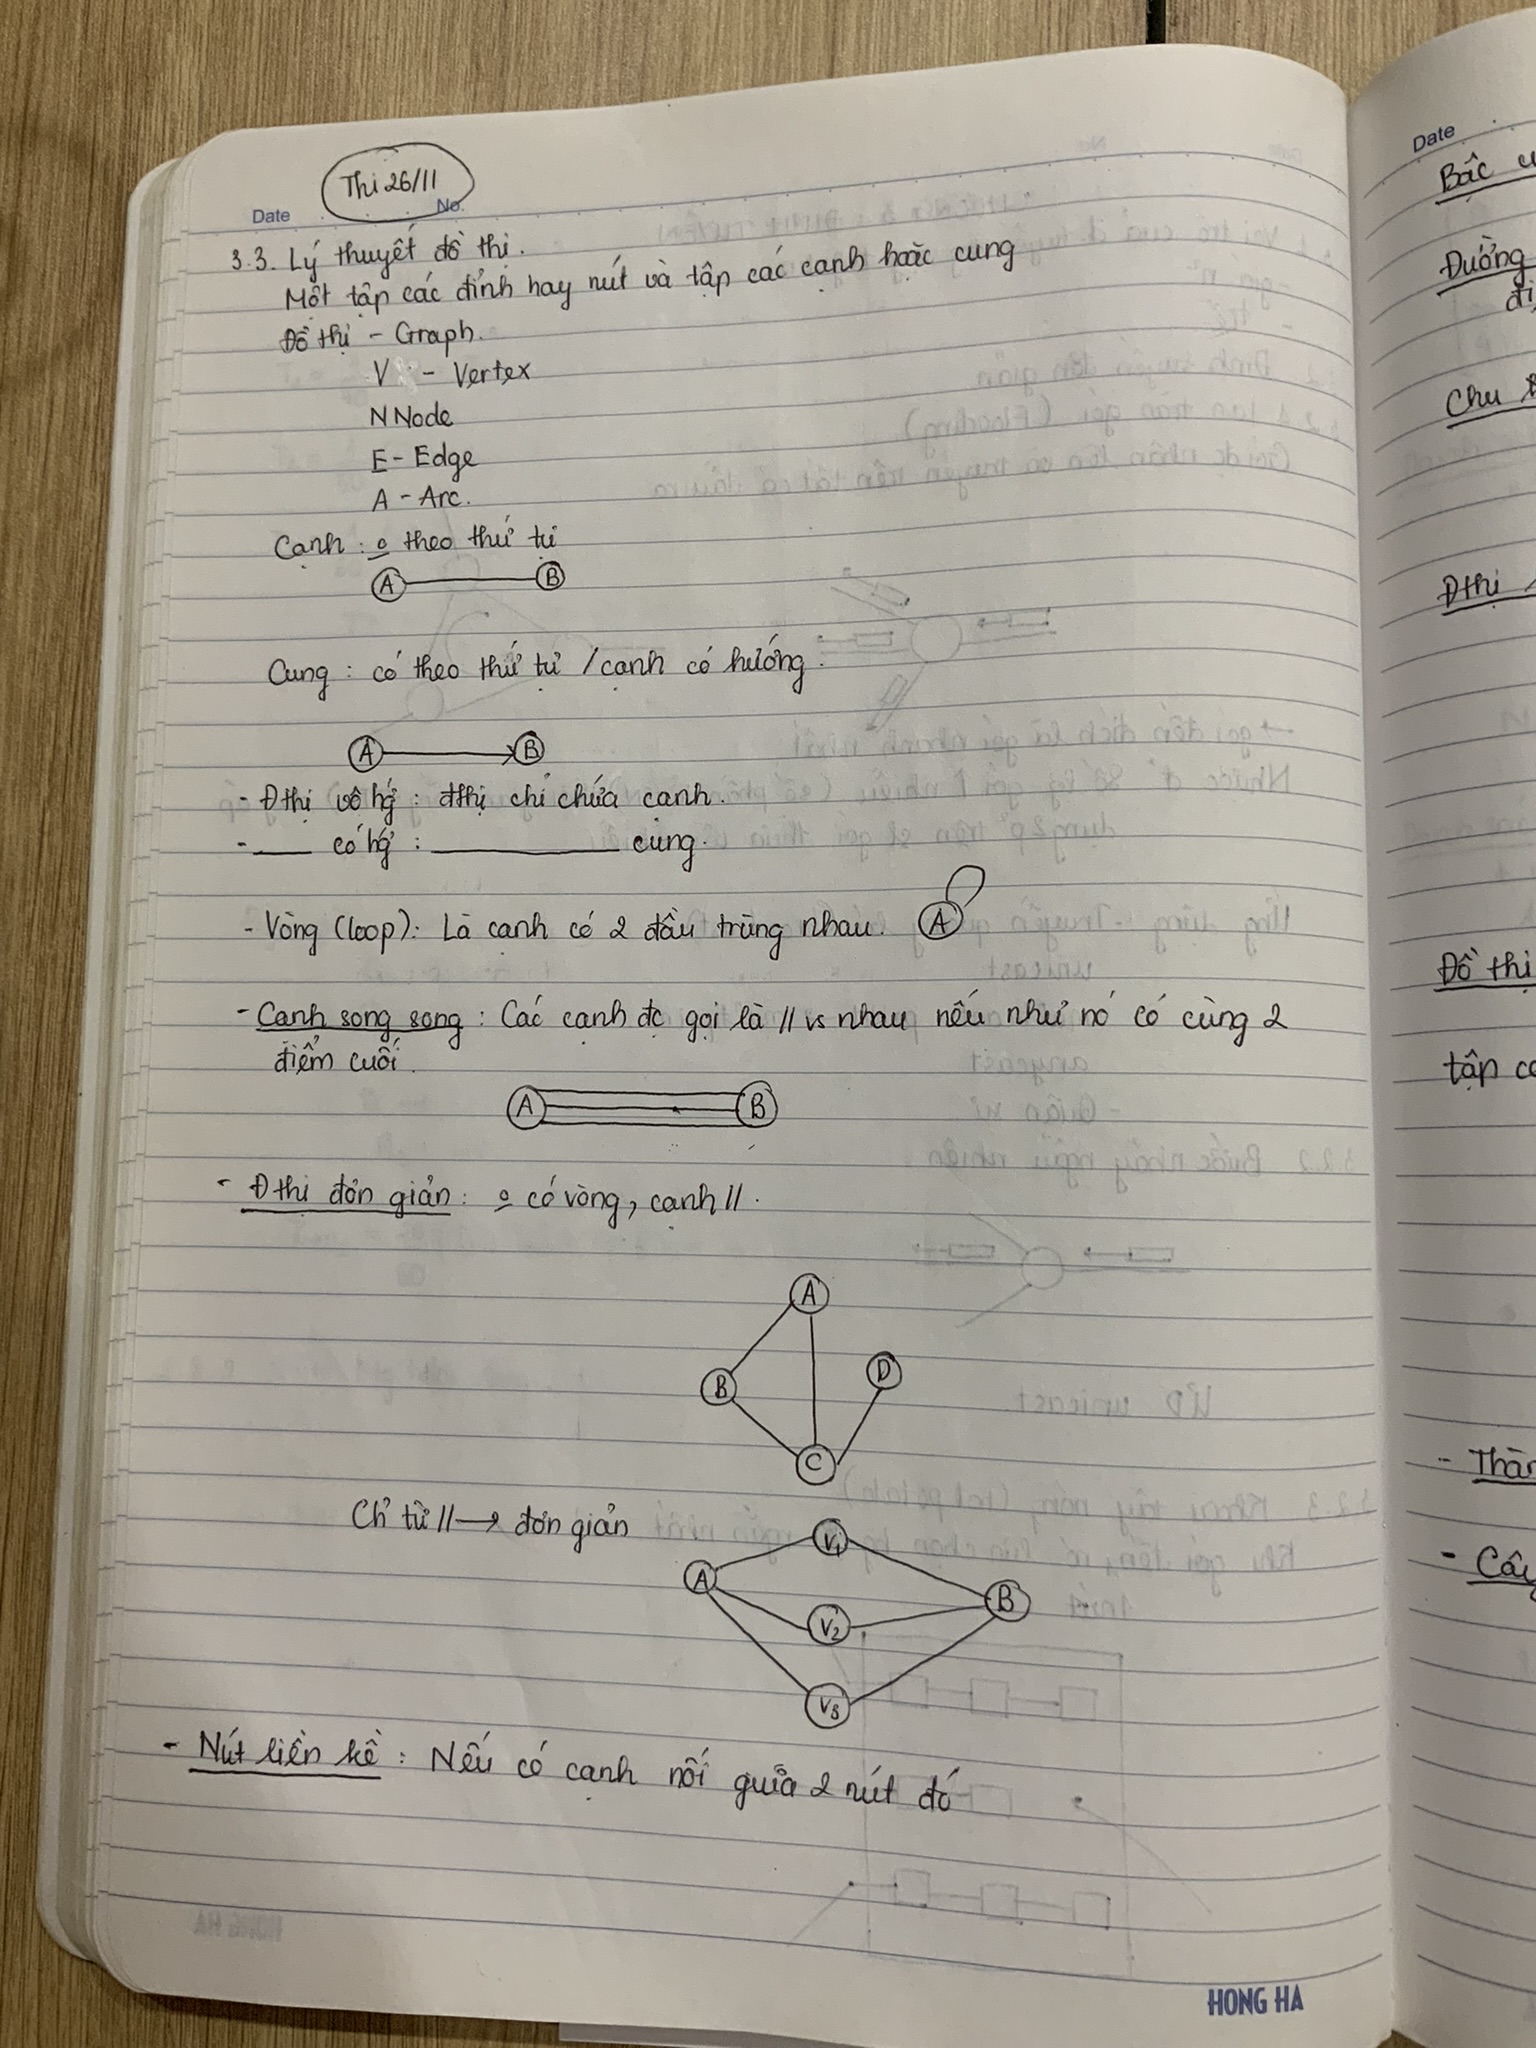 Thi 26/11
Date No.
3.3. Lý thuyết đồ thị.
Một tập các đỉnh hay nút và tập các cạnh hoặc cung
Đồ thị - Graph.
V - Vertex
N Node
E - Edge
A - Arc.
Cạnh : o theo thứ tự
A B
Cung : có theo thứ tự / cạnh có hướng.
A B
- Đthị vô hg : đthị chỉ chứa cạnh.
- ___ có hg : ___ cung.
- Vòng (loop): Là cạnh có 2 đầu trùng nhau. A
- Cạnh song song : Các cạnh đc gọi là // vs nhau nếu như nó có cùng 2
điểm cuối.
A B
- Đthị đơn giản : o có vòng, cạnh //.
A
B D
C
Ch từ // → đơn giản
V1
A B
V2
V3
- Nút liền kề : Nếu có cạnh nối giữa 2 nút đó
HONG HA
Date
Bậc
Đường
Chu
Đthị
Đồ thị
tập